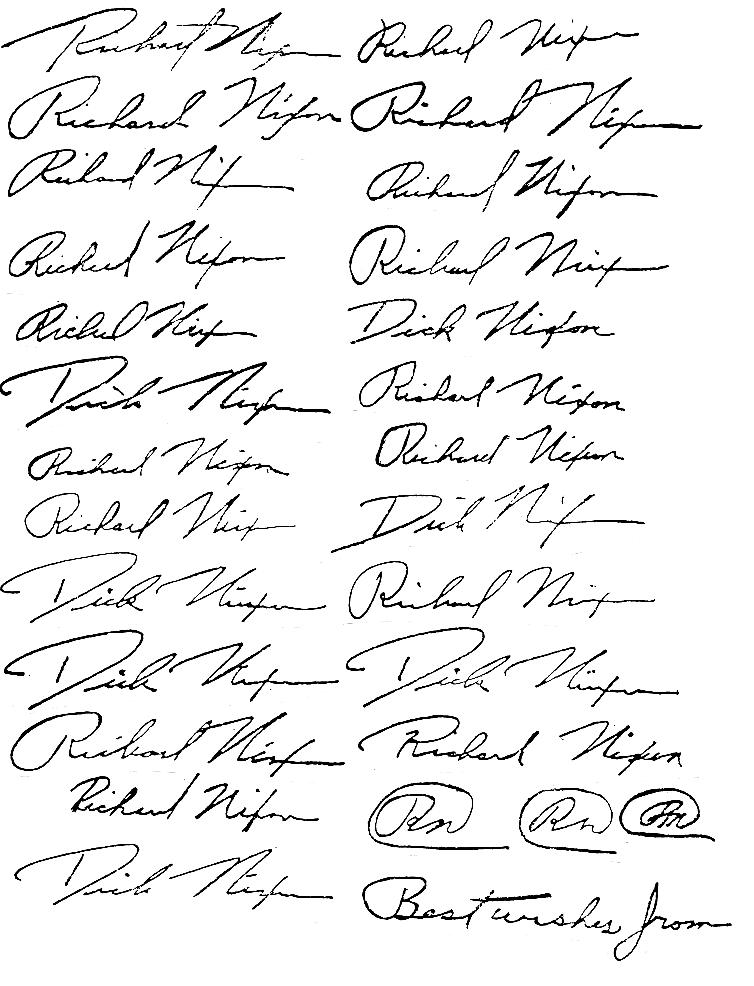 Richard Nixon Richard Nixon
Richard Nixon Richard Nixon
Richard Nixon Richard Nixon
Richard Nixon Richard Nixon
Richard Nixon Dick Nixon
Dick Nixon Richard Nixon
Richard Nixon Richard Nixon
Richard Nixon Dick Nixon
Dick Nixon Richard Nixon
Dick Nixon Dick Nixon
Richard Nixon Richard Nixon
Richard Nixon RN RN RN
Dick Nixon Best wishes from